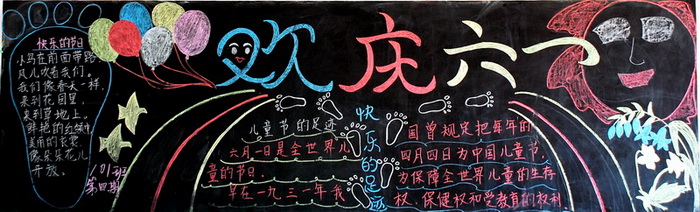 欢庆六一
快乐的节日
小鸟在前面带路
风儿吹着我们。
我们像春天一样,
来到花园里,
来到草地上。
鲜艳的红领巾
美丽的衣裳,
像朵朵花儿
开放。
101班
第四期
儿童节的足迹
六月一日是全世界儿
童的节日。
早在一九三一年我
快乐的足迹
国曾规定把每年的
四月四日为中国儿童节,
为保障全世界儿童的生存
权、保健权和受教育的权利